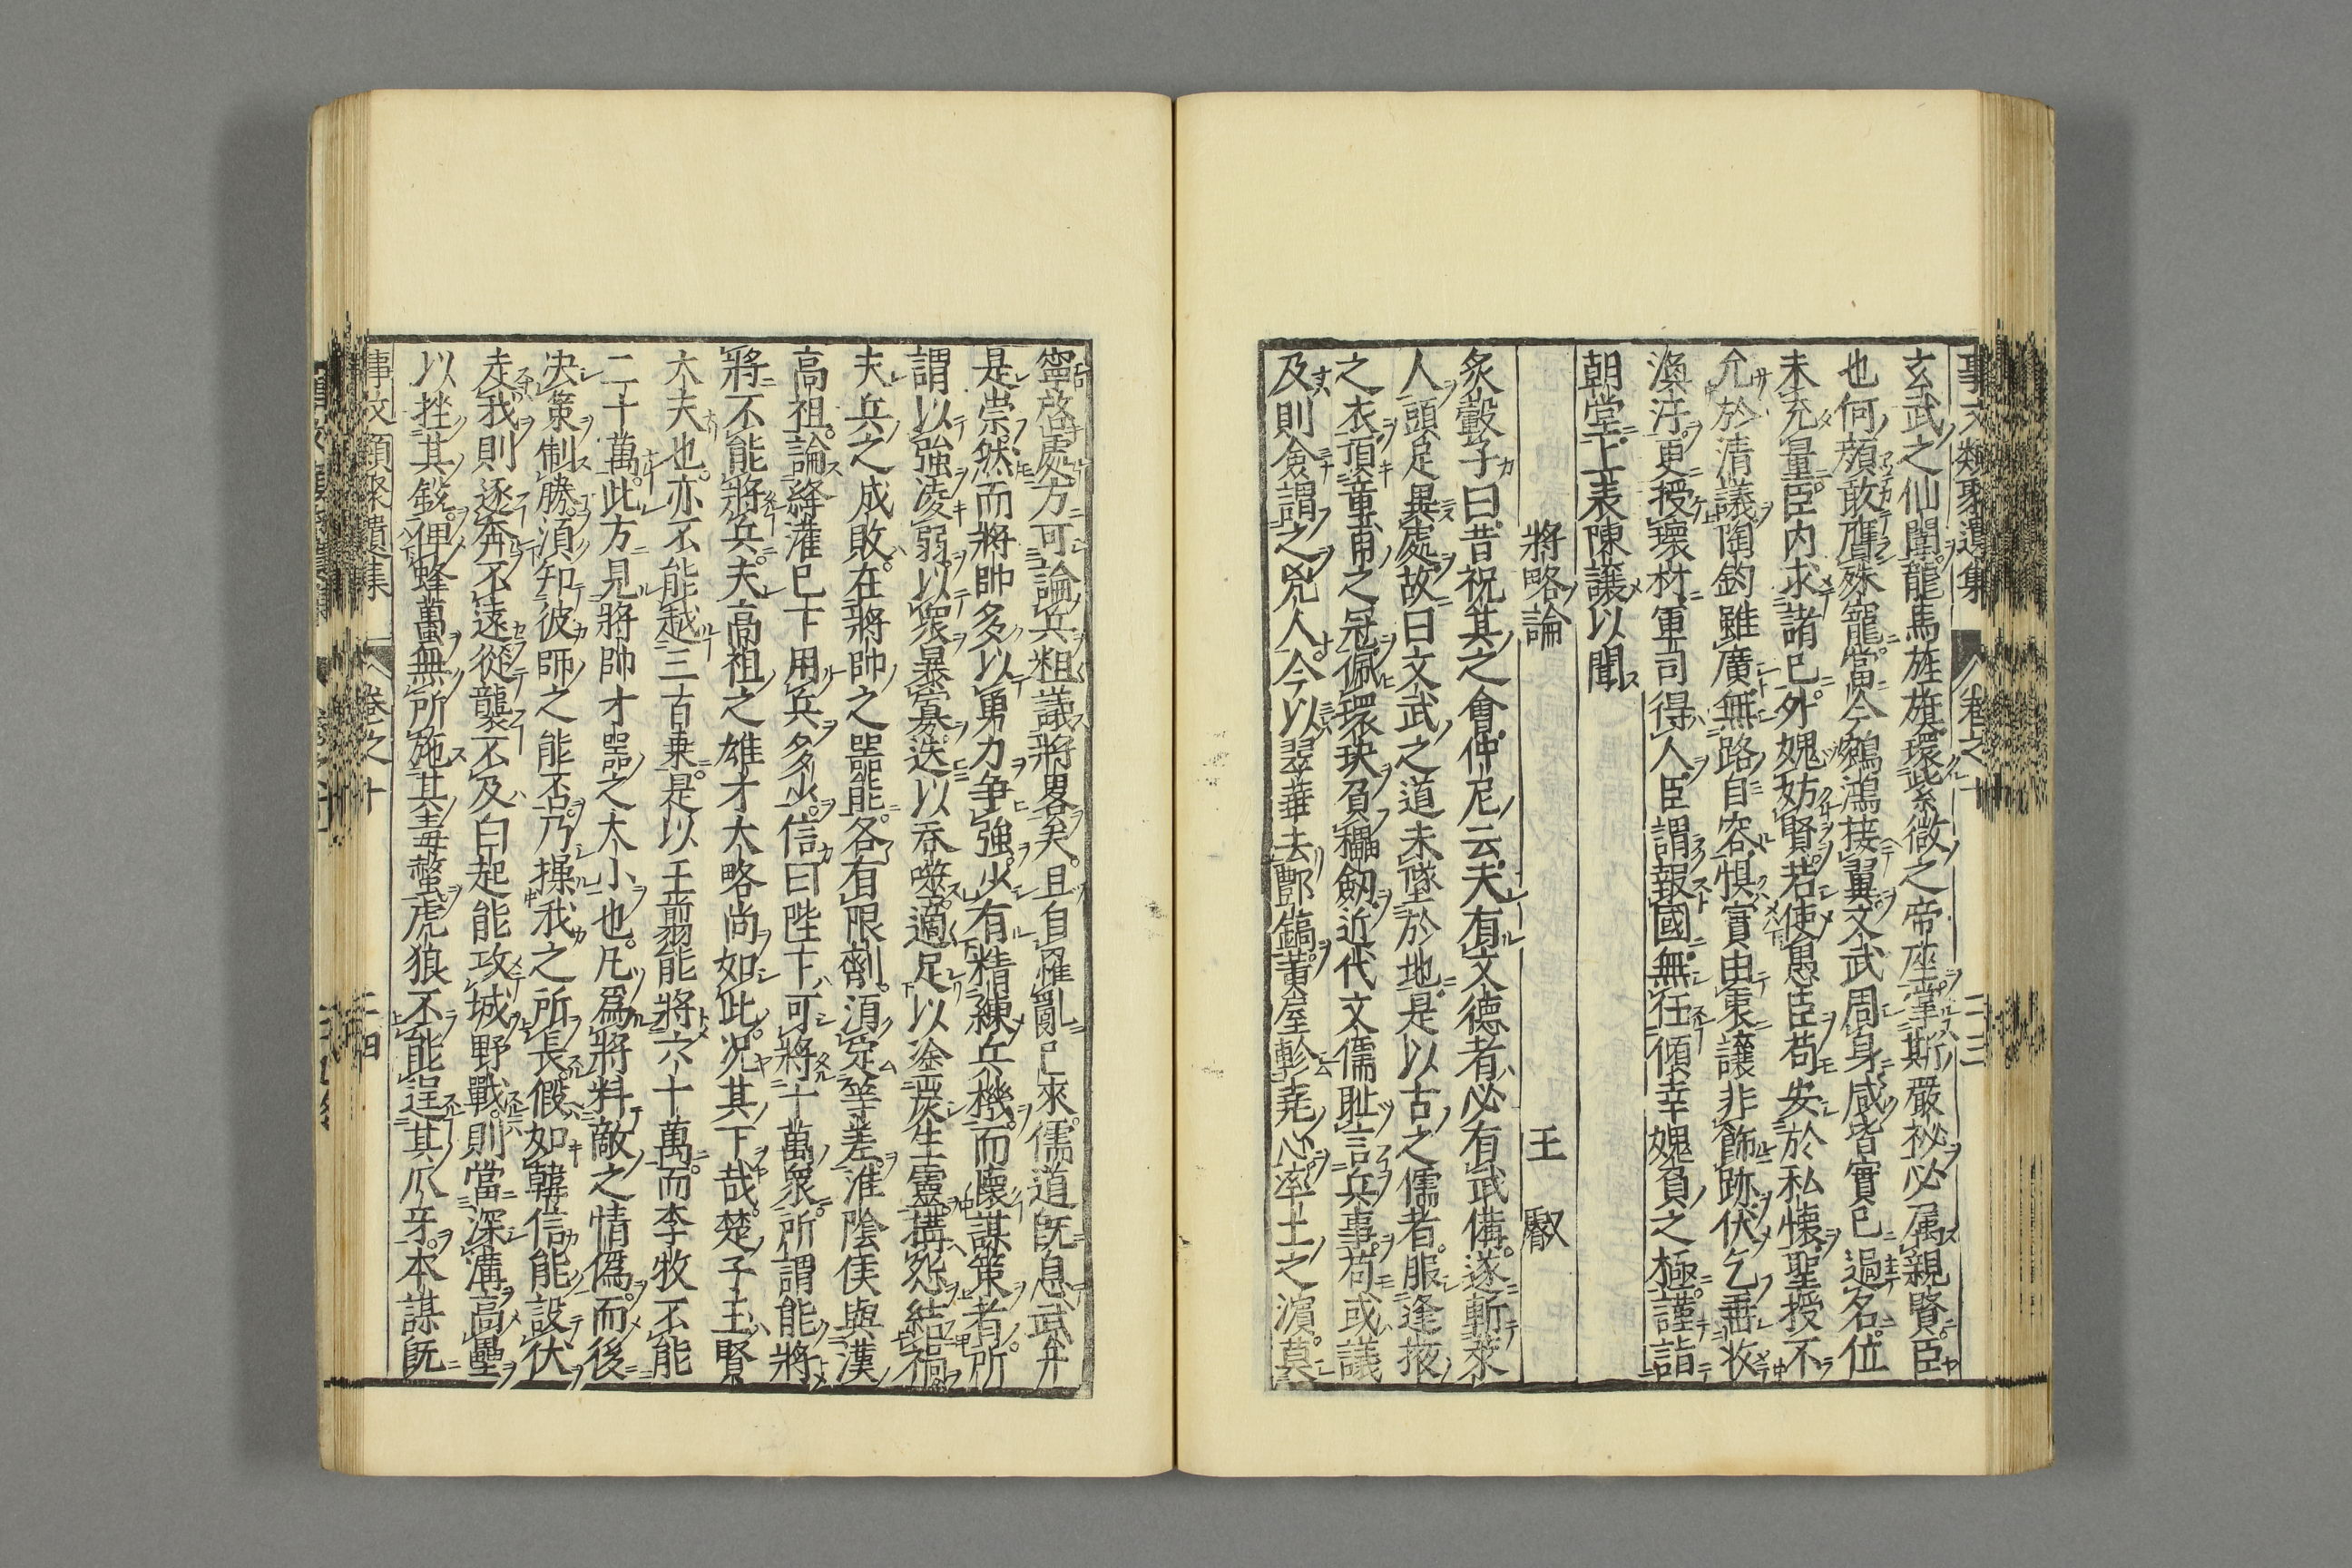 事文類聚遺集 卷之十 二十三
玄武之仙闈龍馬旌旗環紫微之帝座掌斯嚴祕必属親賢臣
也何顔敢膺殊寵當今鵷鴻接翼文武周身咸皆實已過名位
未充量臣内求諸已外媿妨賢若使愚臣苟安於私懐聖授不
允於清議陶鈞雖廣無路自容惧實由衷讓非飾跡伏乞垂收
渙汗更授壞材軍司得人臣謂報國無任傾幸媿負之極謹詣
朝堂上表陳讓以聞
將略論 王叡
炙轂子曰昔祝其之會仲尼云夫有文德者必有武備遂斬萊
人頭足異處故曰文武之道未墜於地是以古之儒者服逢掖
之衣預章甫之冠佩環玦負欛劒近代文儒耻言兵事苟或議
及則僉謂之兇人今以翠華去酆鎬黄屋軫堯心率土之濵莫
寧啓處方可論兵粗議將畧矣且自罹亂已來儒道旣息武弁
是崇然而將帥多以勇力争強少有精練兵機而懷謀策者所
謂以強淩弱以衆暴寡迭以吞噬適足以塗炭生靈搆怨結禍
夫兵之成敗在將帥之噐能各有限劑須定等差淮陰侯與漢
高祖論絳灌已下用兵多少信曰陛下可將十萬衆所謂能將
將不能將兵夫高祖之雄才大略尚如此况其下哉楚子玉賢
大夫也亦不能越三百乗是以王翦能將六十萬而李牧不能
二十萬此方見將帥才噐之大小也凡爲將料敵之情僞而後
决策制勝須知彼師之能否乃操我之所長假如韓信能設伏
走我則逐奔不遠從襲不及白起能攻城野戰則當深溝高壘
以挫其鋭俾蜂蠆無所施其毒螫虎狼不能逞其爪牙本謀旣
事文類聚遺集 卷之十 二十四